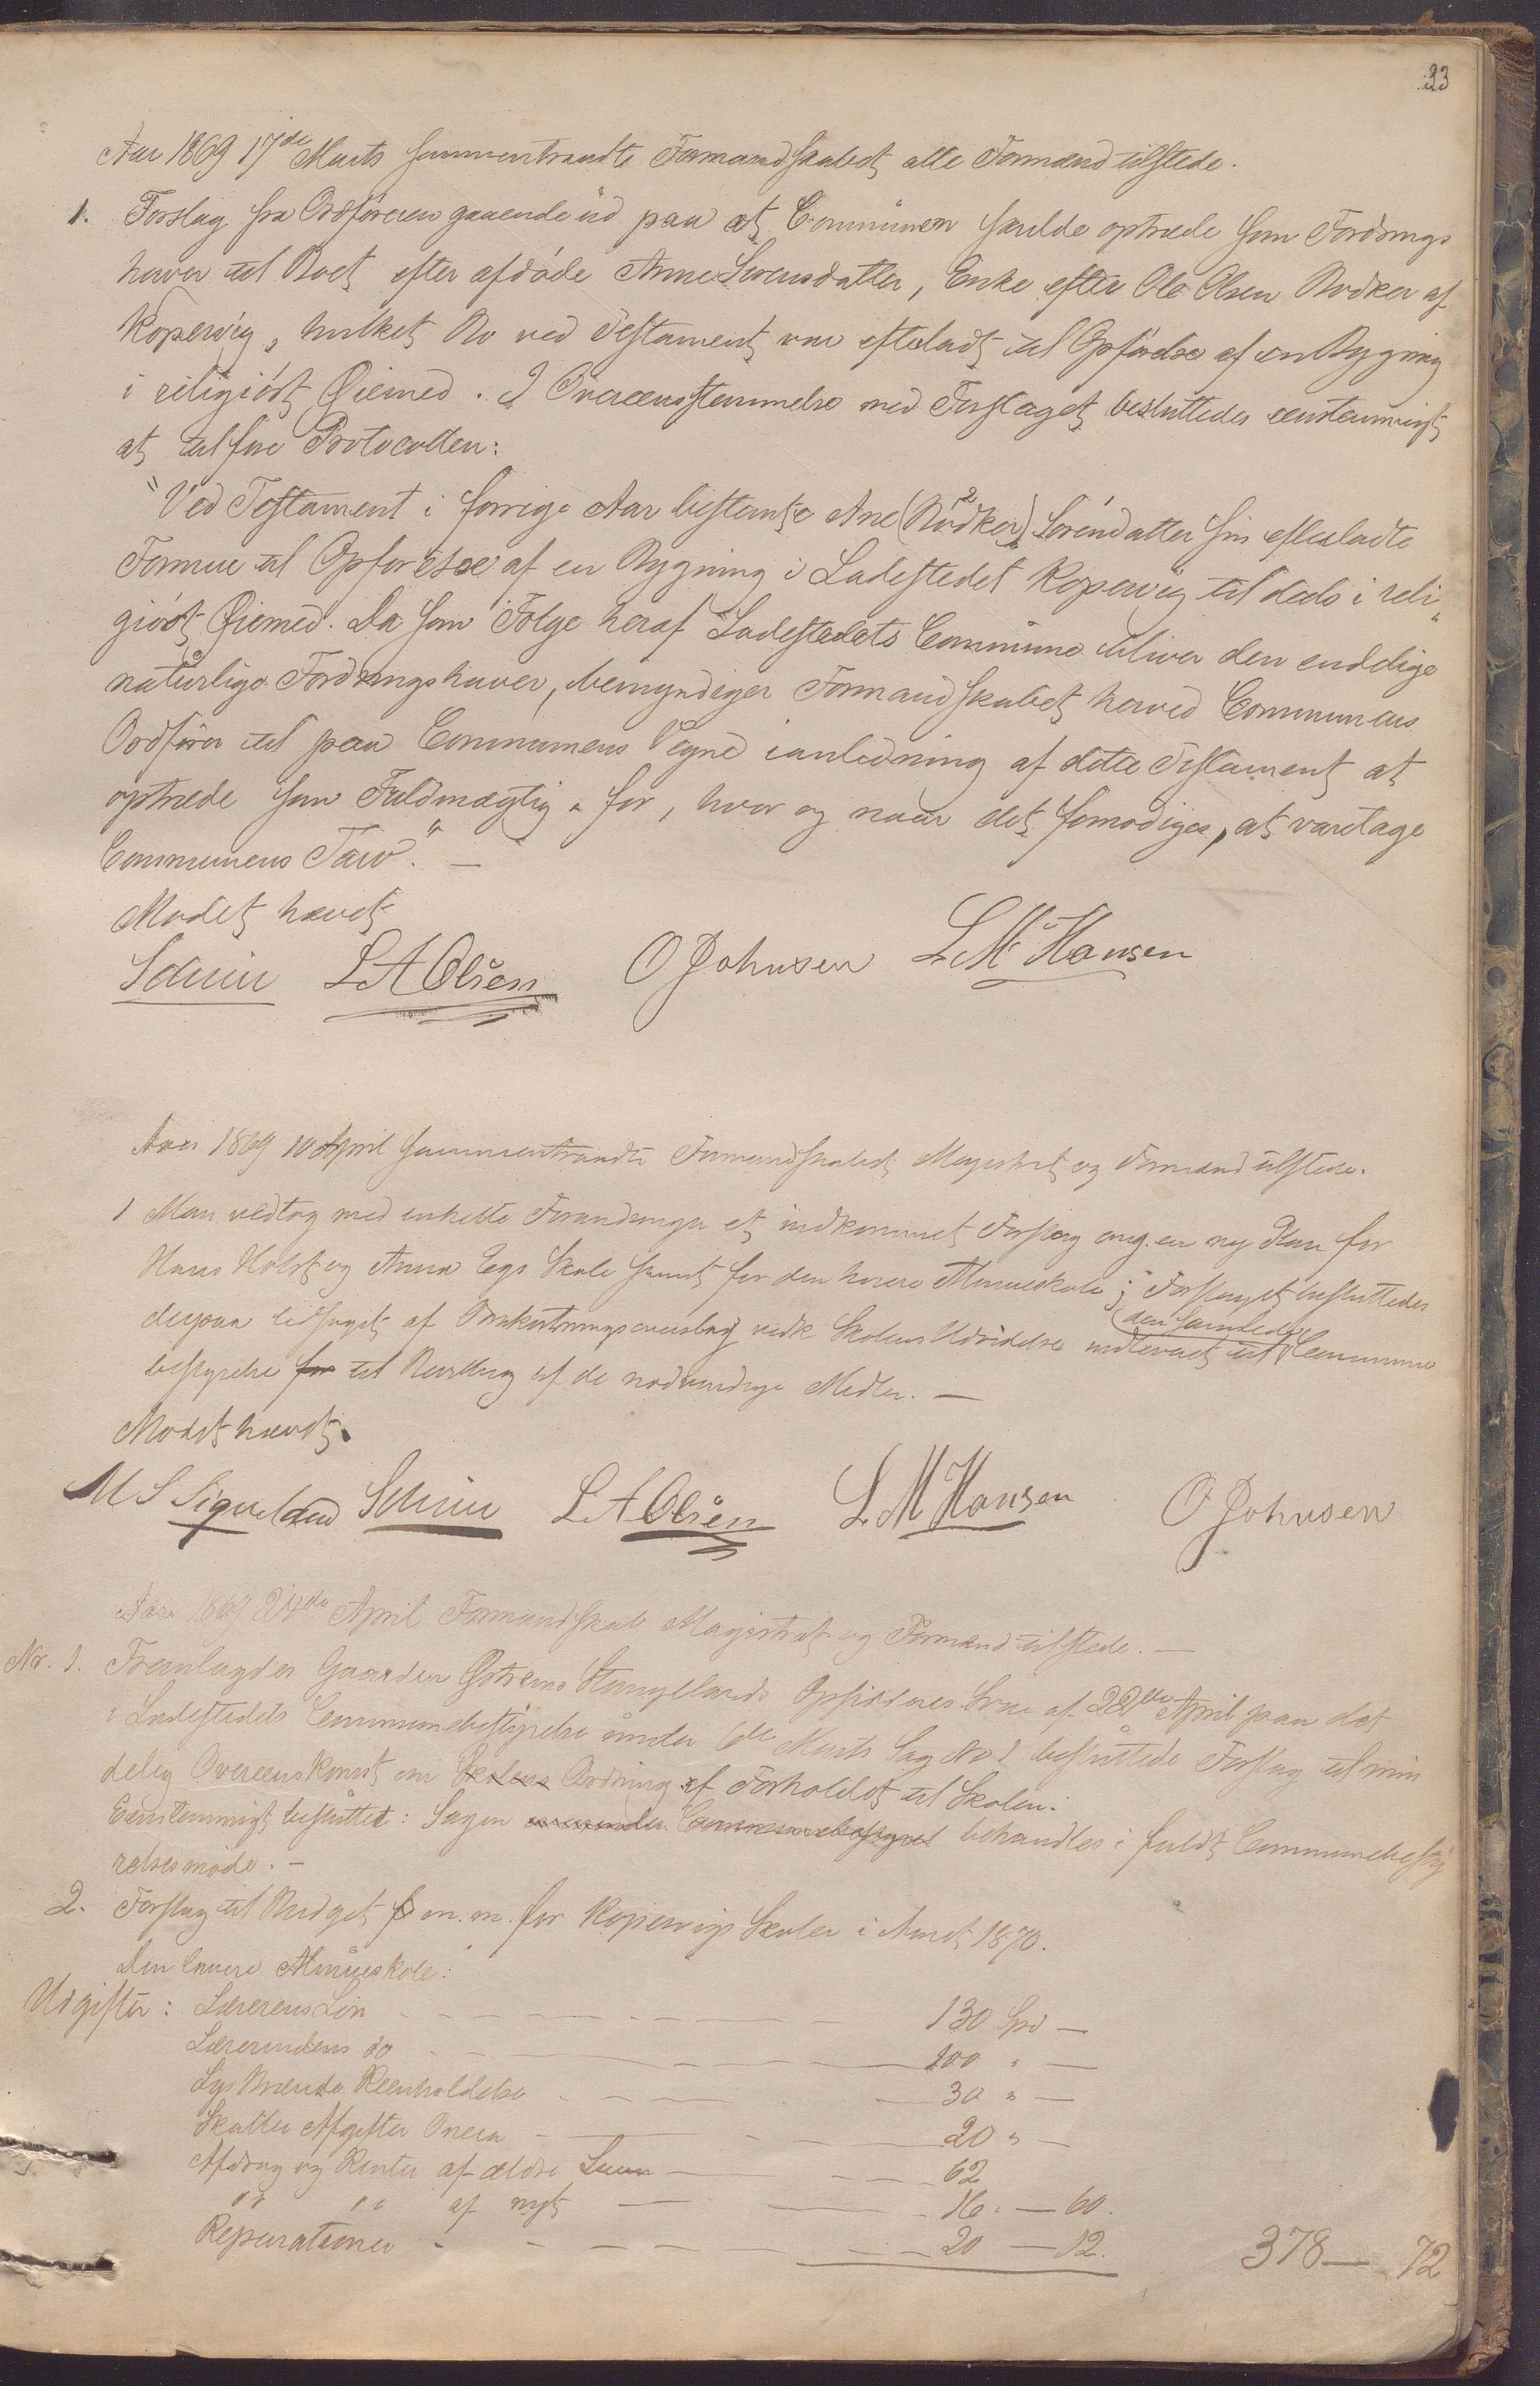 33
Aar 1869 17de Marts sammentraadte Formandskabet alle Formænd tilstede.
1. Forslag fra Ordføreren gaaende ud paa at Communen skulde optræde som Fordrings
haver til Boet efter afdøde Anne Sørensdatter, Enke efter Ole Olsen Bødker af
Kopervig, hvilket Bo ved Testament var efterladt til Opførelse af en Bygning
i religiøst Øiemed. I Overeensstemmelse med Forslaget besluttedes eenstemmigt
at tilføre Protocollen:
"Ved Testament i forrige Aar bestemte Ane (Bødker)2 Sørensdatter sin efterladte
Formue til Opførelse af en Bygning i Ladestedet Kopervig til deels i reli-
giøst Øiemed. Da som Følge heraf Ladestedets Commune bliver den endelige
naturlige Fordringshaver, bemyndiger Formandskabet herved Communens
Ordfører til paa Communens Vegne i anledning af dette Testament at
optræde som Fuldmægtig for, hvor og naar det fornødiges, at varetage
Communens Tarv". —
Mødet hævet
Schiær L A Olsen O Johnsen L M Hansen
Aar 1869 10 April sammentraadte Formandskabet Magistrat og Formænd tilstede.
1 Man vedtog med enkelte Forandringer et indkommet Forslag ang. en ny Plan for
Hans Holst og Anna Egs Skole samt for den høiere Almueskole; Forslaget besluttedes
derpaa ledsaget af Omkostningsoverslag vedk Skolens Udvidelse indleveret til (den samlede) Commune
bestyrelse for til Bevilling af de nødvendige Midler. —
Mødet hævet.
M S Sigvaland Schiær L A Olsen L M Hansen O Johnsen
Aar 1869 24de April Formandskab Magistrat og Formænd tilstede. —
Nr. 1. Fremlagdes Gaarden Østremo Stangelands Opsidderes Svar af 22de April paa det
i Ladestedets Communebestyrelse under 6te Marts Sag No 1 besluttede Forslag til min
delig Overeenskomst om Skolens Ordning af Forholdet til Skolen.
Eenstemmigt besluttet: Sagen behandles i fuldt Communebesty
relsesmøde. —
2. Forslag til Budget fo m. m. for Kopervigs Skoler i Aaret 1870.
Den lavere Almueskole:
Udgifter: Lærerens Løn — 130 Spd —
Lærerindens do — 100 " —
Lys Brænde Reenholdelse — 30 " —
Skatter Afgifter Onera — 20 " —
Afdrag og Renter af ældre Laan — 62
" " " " af nyt — 16 " — 60.
Reparationer — 20 — 12. 378 — 72